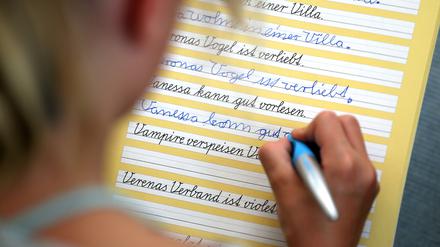 einer Villa.
wohn in einer Villa.
Vogel ist verliebt.
Vogel ist verliebt.
Vanessa kann gut vorlesen.
Vanessa kann gut
Vampire verspeisen
Verenas Verband ist violett